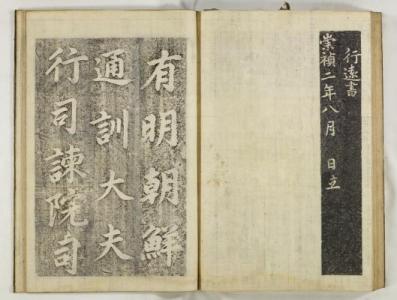 行遠書
崇禎二年八月 日立
有明朝鮮
通訓大夫
行司諫院司